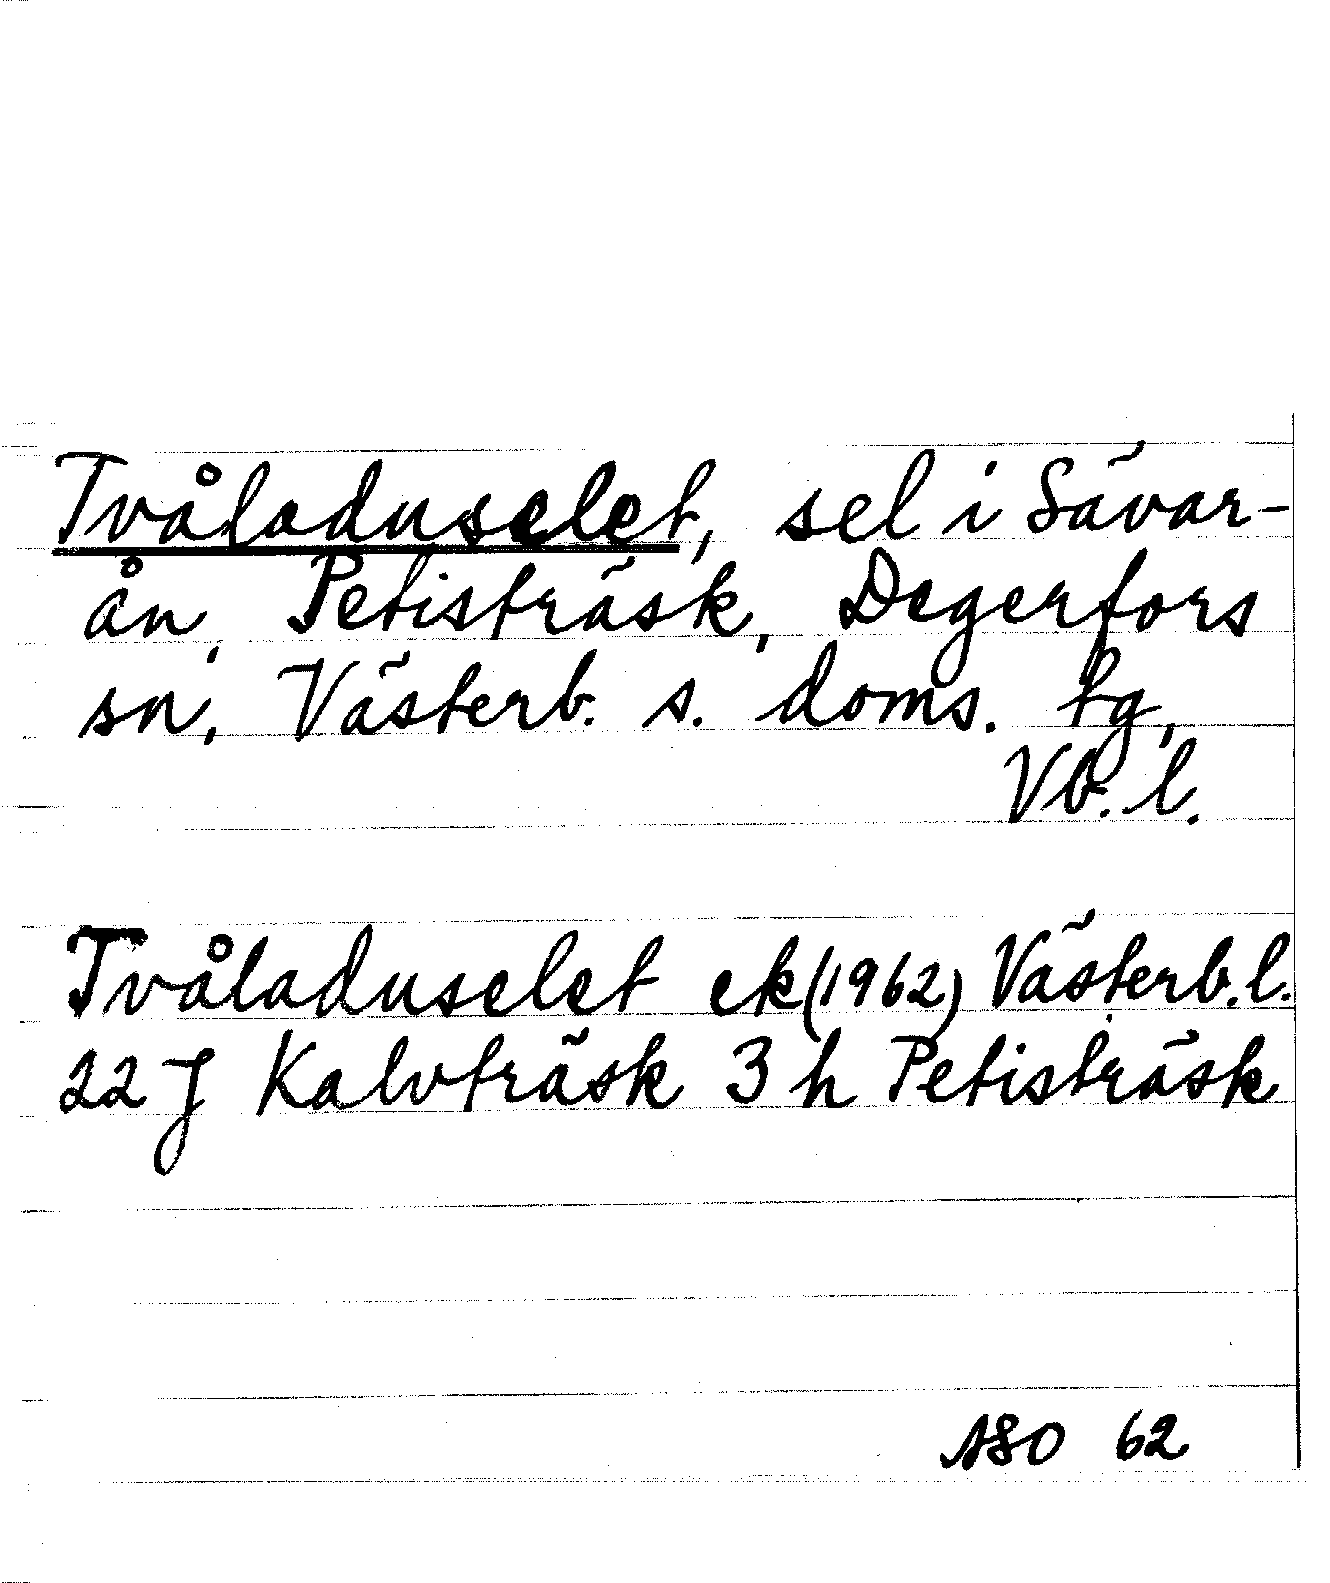 Tvåladuselet, sel i Sävar-
ån, Petisträsk, Degerfors
sn, Västerb. s. doms. tg,
Vb. l.
Tvåladuselet ek (1962) Västerb. l.
22 J Kalvträsk 3 h Petisträsk
ASO 62